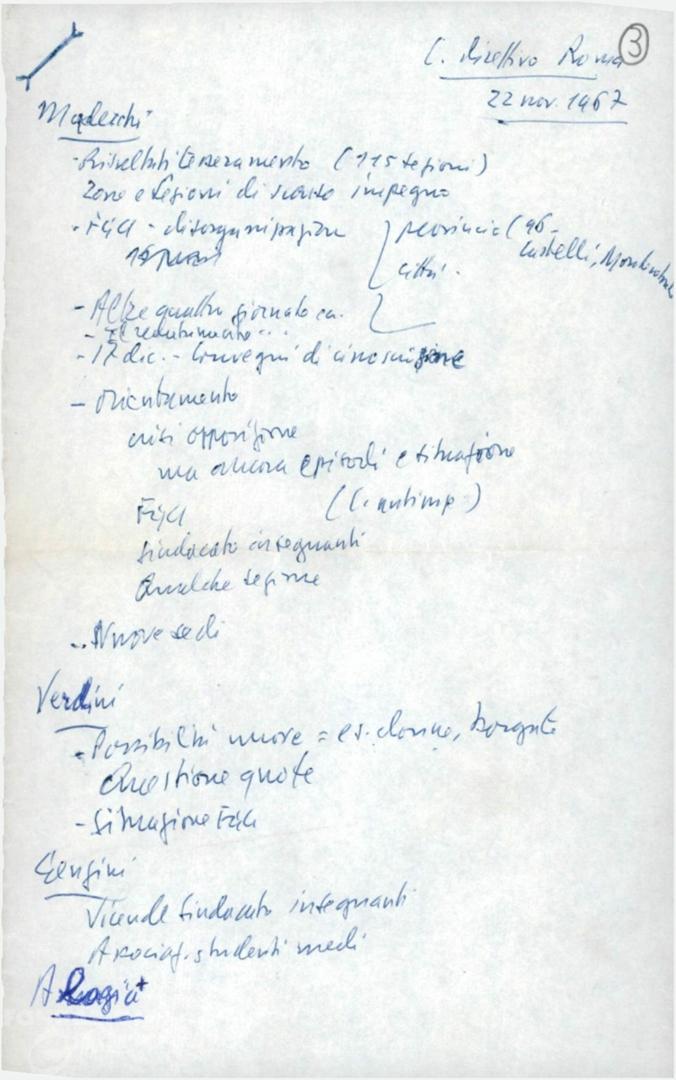 3
C. direttivo Roma
22 nov. 1967
Maderchi
- Risultati tesseramento (115 sezioni)
Zone e sezioni di scarso impegno
- FGCI - disorganizzazione
provincia (
Castelli,
città.
- Altre quattro giornate ca.
- 17 dic. - Convegni di circoscrizione
- Orientamento
crisi opposizione
ma ancora episodi e situazione
FGCI (C. antimp)
Sindacato insegnanti
Qualche sezione
- Nuove sedi
Verdini
- Possibilità nuove = es. donne, borgate
Questione quote
- Situazione FGCI
Vicende Sindacato insegnanti
Associaz. studenti medi